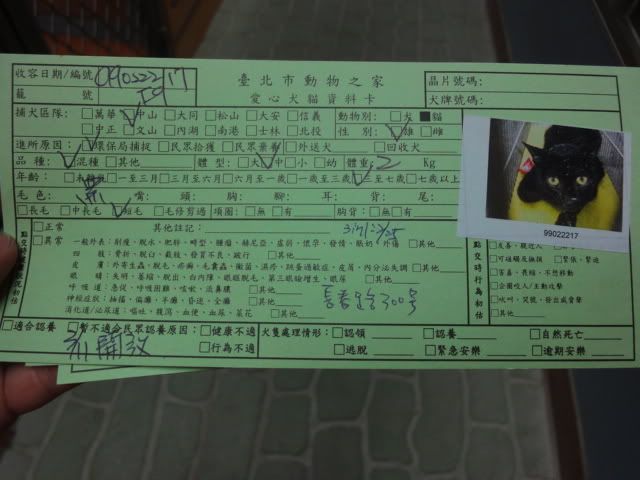 臺北市動物之家
愛心犬貓資料卡
收容日期/編號 晶片號碼:
籠 號 犬牌號碼:
捕犬區隊: □萬華 中山 □大同 □松山 □大安 □信義 動物別: □犬 ■貓
□中正 □文山 □內湖 □南港 □士林 □北投 性 別: 雄 □雌
進所原因: □環保局捕捉 □民眾拾獲 □民眾棄養 □外送犬 □回收犬
品 種: 混種 □其他 體 型: □大 中 □小 □幼 體重: 2 Kg
年齡: □一至三月 □三月至六月 □六月至一歲 □一至三歲 三至七歲 □七歲以上
毛 色: 黑 嘴: 頭: 胸: 腳: 耳: 背: 尾:
□長毛 □中長毛 短毛 □毛修剪過 項圈: □無 □有 胸背: □無 □有
99022217
□正常 其他註記:
□異常 一般外表: 削瘦、脫水、肥胖、畸型、腫瘤、赫尼亞、虛弱、懷孕、發情、眼奶、外傷 □其他
四 肢: 骨折、脫臼、截肢、發育不良、跛行 □其他
皮 膚: 外寄生蟲、脫毛、疥癬、毛囊蟲、黴菌、濕疹、跳蚤過敏症、皮屑、內分泌失調 □其他
眼 睛: 失明、萎縮、脫出、白內障、眼瞼脫毛、第三眼瞼增生、眼屎 □其他
呼 吸 道: 急促、呼吸困難、咳嗽、流鼻膿 □其他
神經症狀: 抽搐、偏癱、半癱、昏迷、全癱 □其他
消化道/泌尿道: 嘔吐、腹瀉、血便、血尿、菜花 □其他
長春 300號
點交時行為初估
□友善、親近人
□可碰觸及撫摸 □緊張、緊迫
□害羞、畏縮、不想移動
□企圖咬人/主動攻擊
□吠叫、哭號、發出威脅聲
□其他
□適合認養 □暫不適合民眾認養原因: □健康不適 犬隻處理情形: □認領 □認養 □自然死亡
□行為不適 □逃脫 □緊急安樂 □逾期安樂
不開放